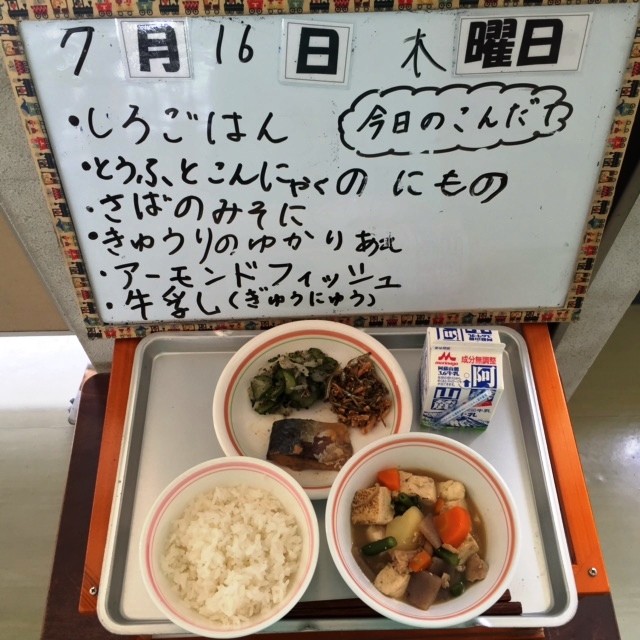 7月16日 木曜日
今日のこんだて
・しろごはん
・とうふとこんにゃくの にもの
・さばのみそに
・きゅうりのゆかりあえ
・アーモンドフィッシュ
・牛乳し(ぎゅうにゅう)
成分無調整
阿蘇山麓